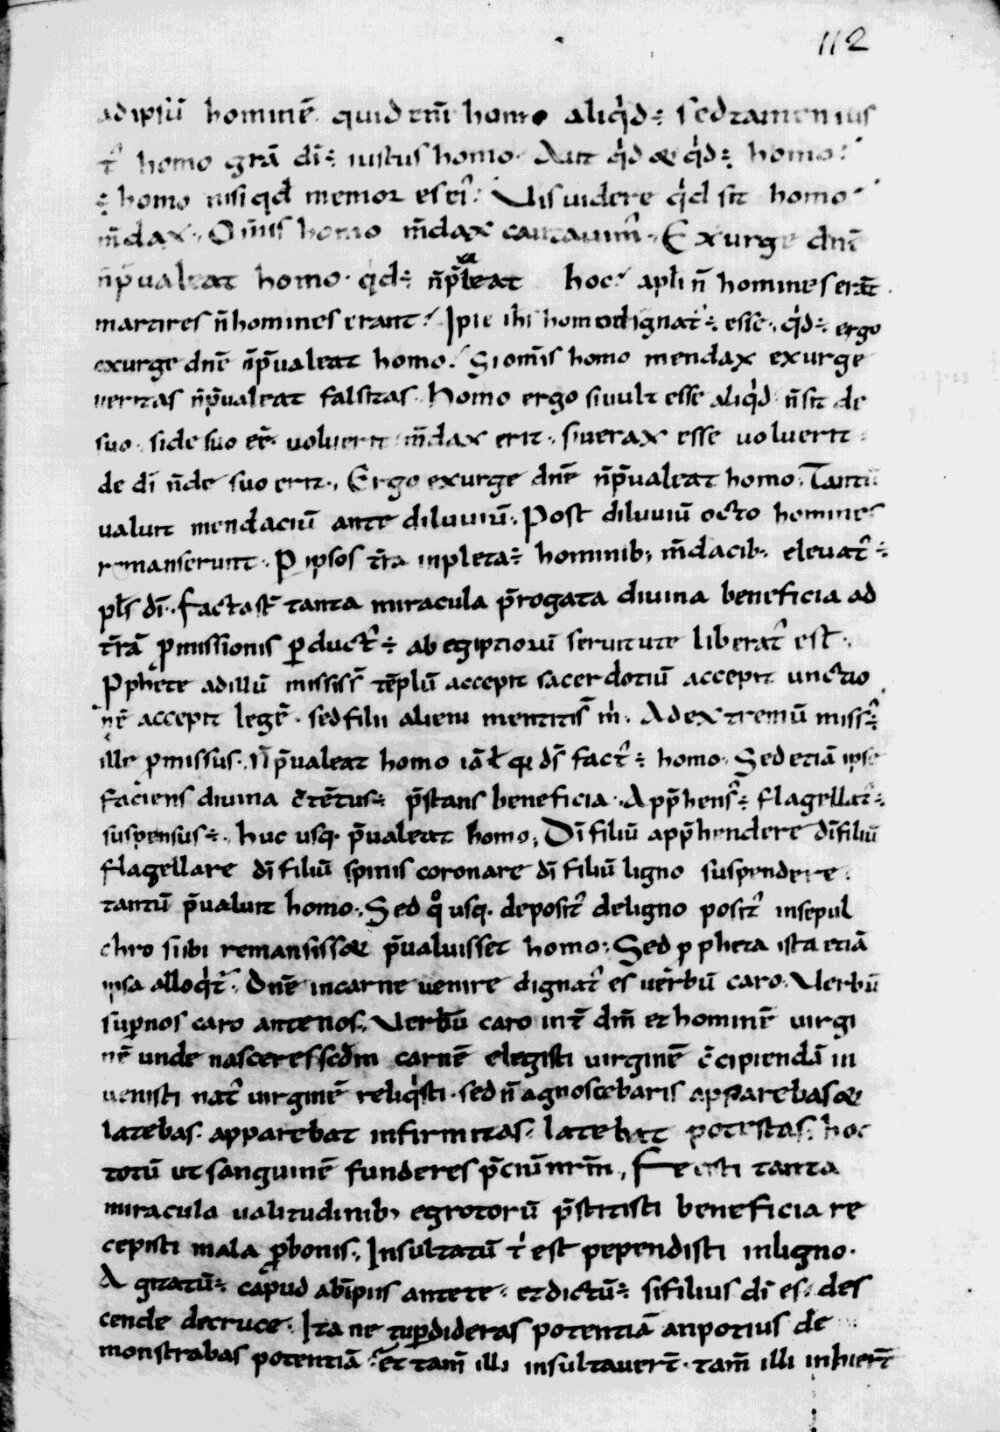 112
ad ipsū hominē. quid em̄ homo aliq̇d ÷ sed tamen ius
t᷒ homo grā dī ÷ iustus homo. Aut q̇d & q̇d ÷ homo.
÷ homo nisi qđ memor es ei᷒. Vis videre q̇d sit homo
m̄dax. Om̄is homo m̄dax cantauim᷒. Exurge dnē
n̄p̄ualeat homo. q̇d ÷ n̄p̄ualeat hoc. apli n̄ homines erāt.
martires n̄ homines erant. Ipse ih̄s homo dignat᷒ ÷ esse. q̇d ÷ ergo
exurge dnē n̄p̄ualeat homo. Si om̄is homo mendax exurge
ueritas n̄p̄ualeat falsitas. Homo ergo si uult esse aliq̇d. n̄ sit de
suo. si de suo eē. uoluerit m̄dax erit. si uerax esse uoluerit
de dī n̄ de suo erit. Ergo exurge dnē n̄p̄ualeat homo. Tantū
ualuit mendaciū ante diluuiū. Post diluuiū octo homines
remanserunt. P ipsos t̄ra inpleta ÷ hominib; m̄dacib. elevat᷒ ÷
pl̄s dī. Facta st̄ tanta miracula p̄rogata diuina beneficia ad
t̄rā ꝓmissionis ꝑduct᷒ ÷ ab egiptiorū seruitute liberat᷒ est.
Pphete ad illū missi st̄ tēplū accepit sacerdotiū accepit unctio
nē accepit legē. sed filii alieni mentiti st̄ m᷒. Ad extremū miss᷒ ÷
ille ꝓmissus. N̄ p̄ualeat homo iā ł qi ds̄ fact᷒ ÷ homo. Sed etiā ipse
faciens diuina c̄tētus ÷ p̄stans beneficia. App̄hens᷒ ÷ flagellat᷒ ÷
suspensus ÷. huc usq. p̄ualeat homo. Dī filiū app̄hendere dī filiū
flagellare dī filiū spinis coronare dī filiū ligno suspendere.
tantū p̄ualuit homo. Sed q̊ usq. deposit᷒ de ligno posit᷒ in sepul
chro si ibi remansiss& p̄ualuisset homo. Sed ppheta ista etiā
ipsa alloq̇t᷒. Dnē in carne uenire dignat᷒ es uerbū caro. Verbū
suꝑ nos caro ante nos. Verbū caro int̄ dm̄ et hominē virgi
nē unde nasceres scđm carnē elegisti uirginē c̄cipiendā in
uenisti nat᷒ uirginē reliq̇sti. sed n̄ agnoscebaris apparebas &
latebas. apparebat infirmitas. latebat potestas. hoc
totū ut sanguinē funderes p̄ciū nrm̄. Fecisti tanta
miracula ualitudinib; egrotorū p̄stitisti beneficia re
cepisti mala ꝓ bonis. Insultatū t᷒ est pependisti in ligno.
Agitatū ÷ capud ab īpiis ante te. et dictū ÷ si filius dī es. des
cende de cruce. Ita ne tu ꝑdideras potentiā an potius de
monstrabas potentiā. Et tam̄ illi insultauert̄. tam̄ illi